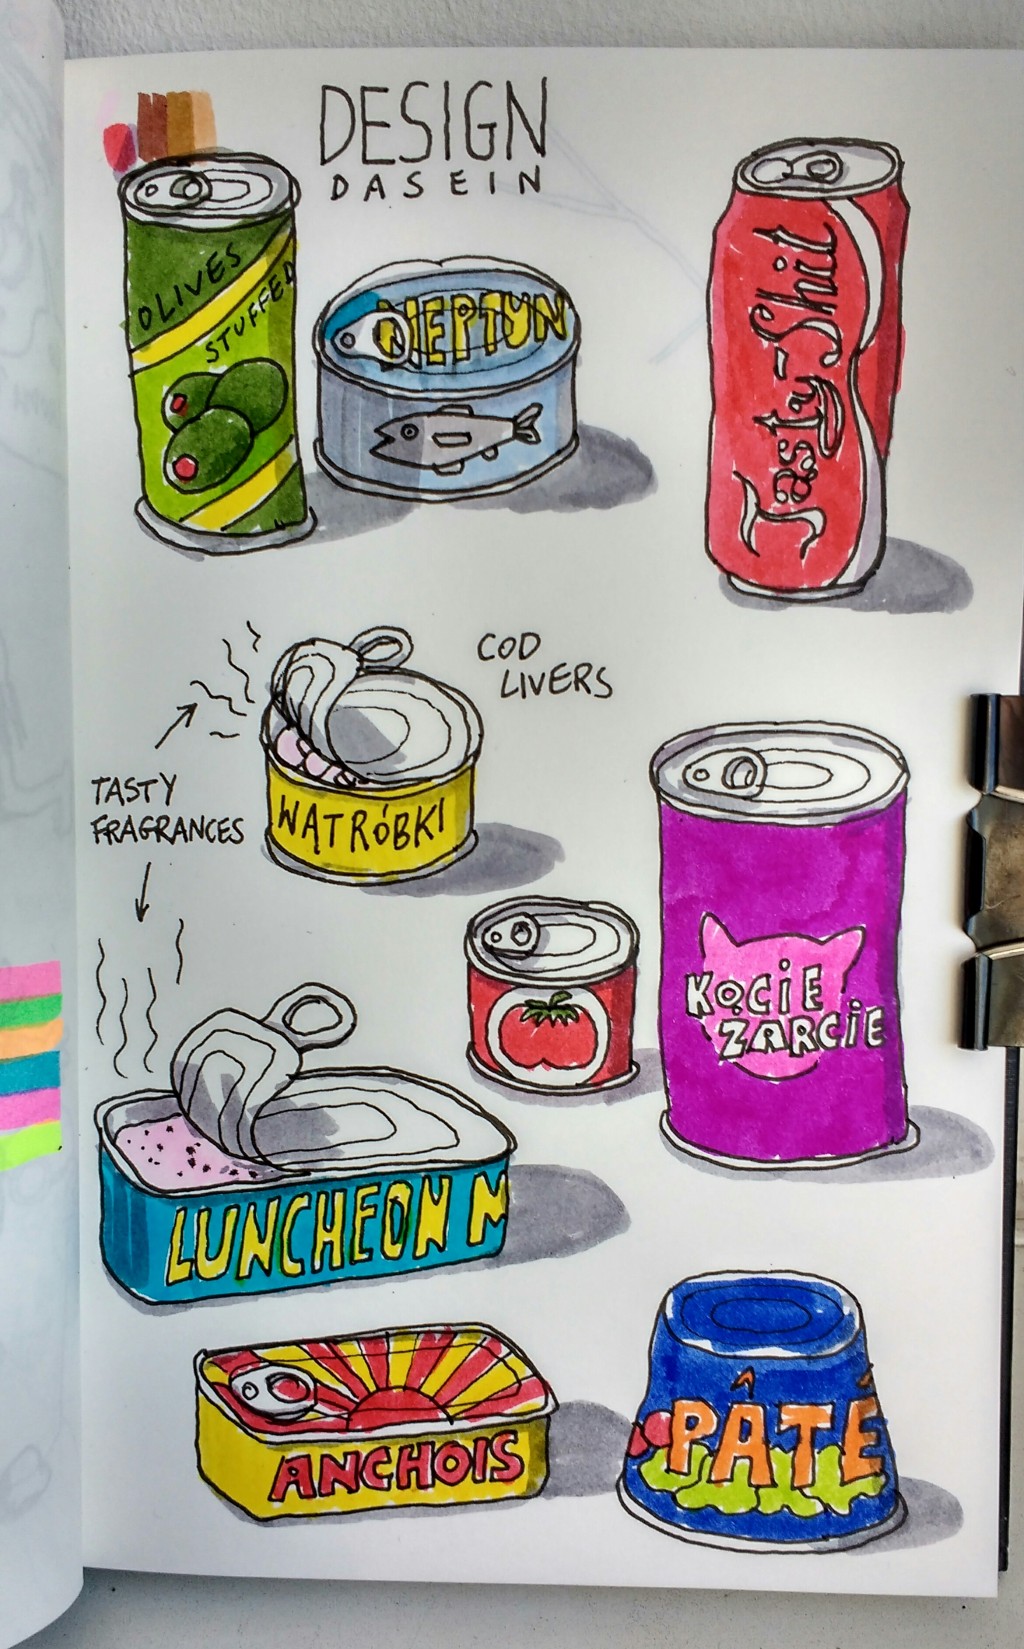 DESIGN
DASEIN
OLIVES
STUFFED
NEPTYN
Tasty-Shit
COD
LIVERS
TASTY
FRAGRANCES
WĄTRÓBKI
KOCIE
ŻARCIE
LUNCHEON M
ANCHOIS
PÂTÉ